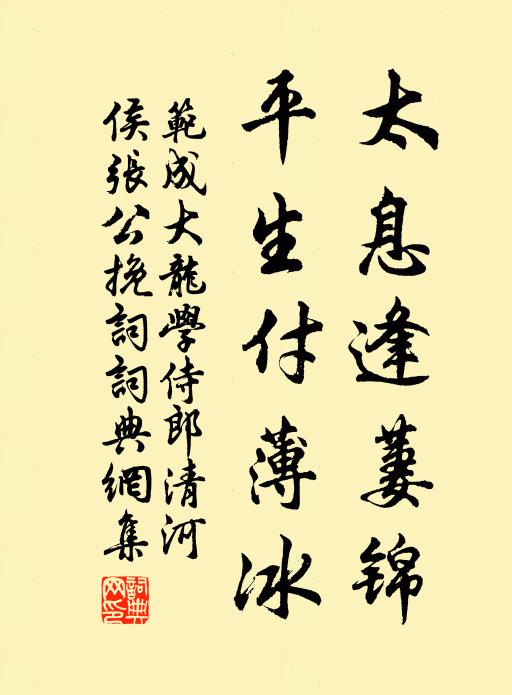 太息逢萋锦
平生付薄冰
範成大龍學侍郎清河
侯張公挽詞詞典網集